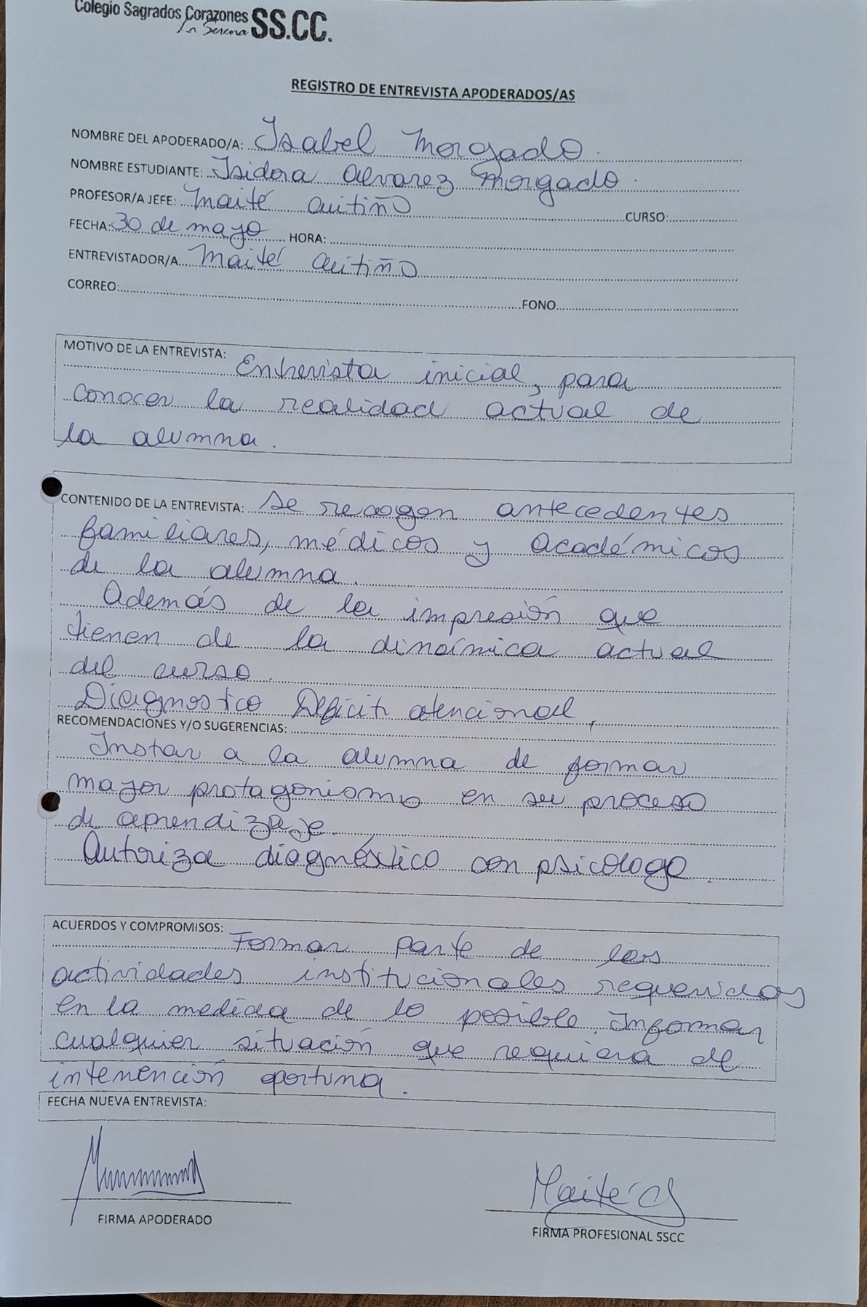 Colegio Sagrados Corazones
La Serena SS.CC.
REGISTRO DE ENTREVISTA APODERADOS/AS
NOMBRE DEL APODERADO/A: Isabel Morgado.
NOMBRE ESTUDIANTE: Isidora Alvarez Morgado.
PROFESOR/A JEFE: Maité Quitiño CURSO:
FECHA: 30 de mayo HORA:
ENTREVISTADOR/A Maité Quitiño
CORREO: FONO
MOTIVO DE LA ENTREVISTA: Entrevista inicial, para
conocer la realidad actual de
la alumna.
CONTENIDO DE LA ENTREVISTA: Se recogen antecedentes
familiares, médicos y académicos
de la alumna.
Además de la impresión que
tienen de la dinámica actual
del curso.
Diagnostico Déficit atencional,
RECOMENDACIONES Y/O SUGERENCIAS:
Instar a la alumna de formar
mayor protagonismo en su proceso
de aprendizaje.
Autoriza diagnóstico con psicólogo.
ACUERDOS Y COMPROMISOS: Formar parte de las
actividades institucionales requeridas
en la medida de lo posible. Informar
cualquier situación que requiera de
intención oportuna.
FECHA NUEVA ENTREVISTA:
FIRMA APODERADO
Maite Q
FIRMA PROFESIONAL SSCC